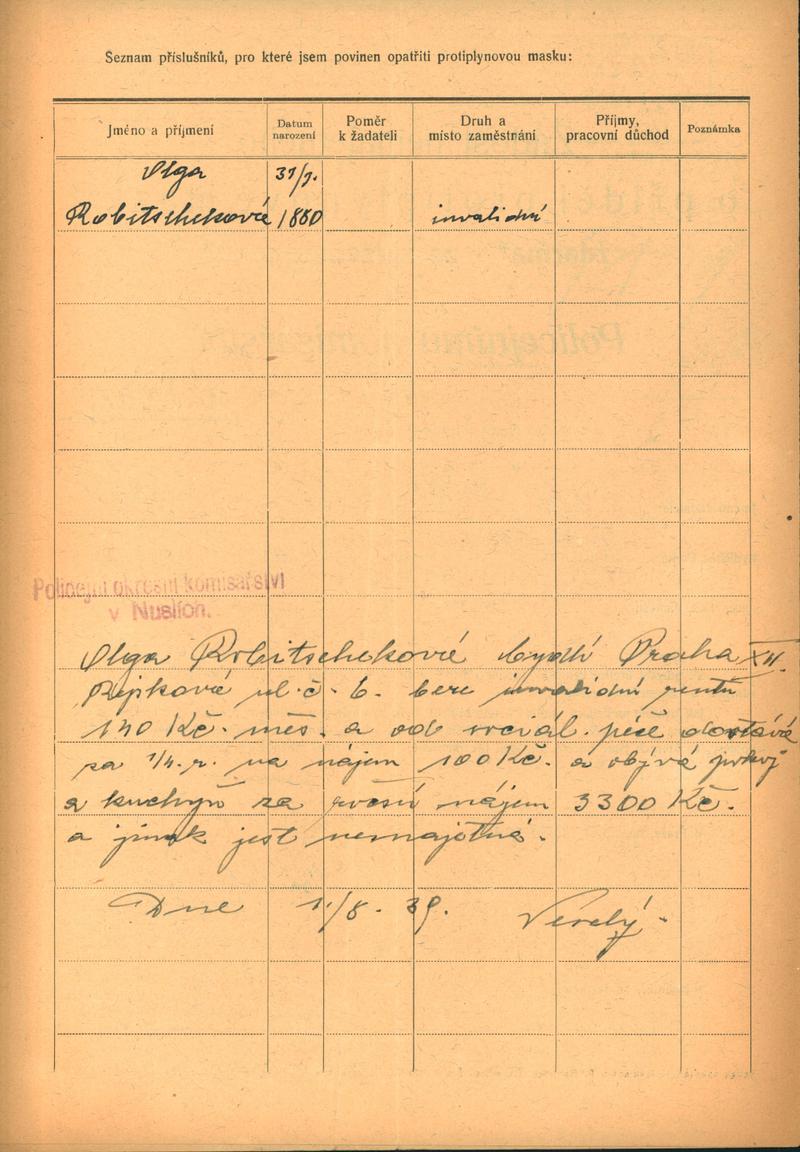 Seznam příslušníků, pro které jsem povinen opatřiti protiplynovou masku:
Jméno a příjmení
Datum narození
Poměr k žadateli
Druh a místo zaměstnání
Příjmy, pracovní důchod
Poznámka
Olga 31/7.
Robitscheková 1880 invalidní
Policejní okresní komisařství
v Nuslích.
Olga Robitscheková bydlí Praha XII.
ul. č. 6. bere invalidní rentu
140 Kč. měs. a od sociál. péče dostává
za 1/4. r. na nájem 100 Kč. a obývá pokoj
a kuchyň za roční nájem 3300 Kč.
a jinak jest nemajetná.
Dne 1./8. 39. Veselý